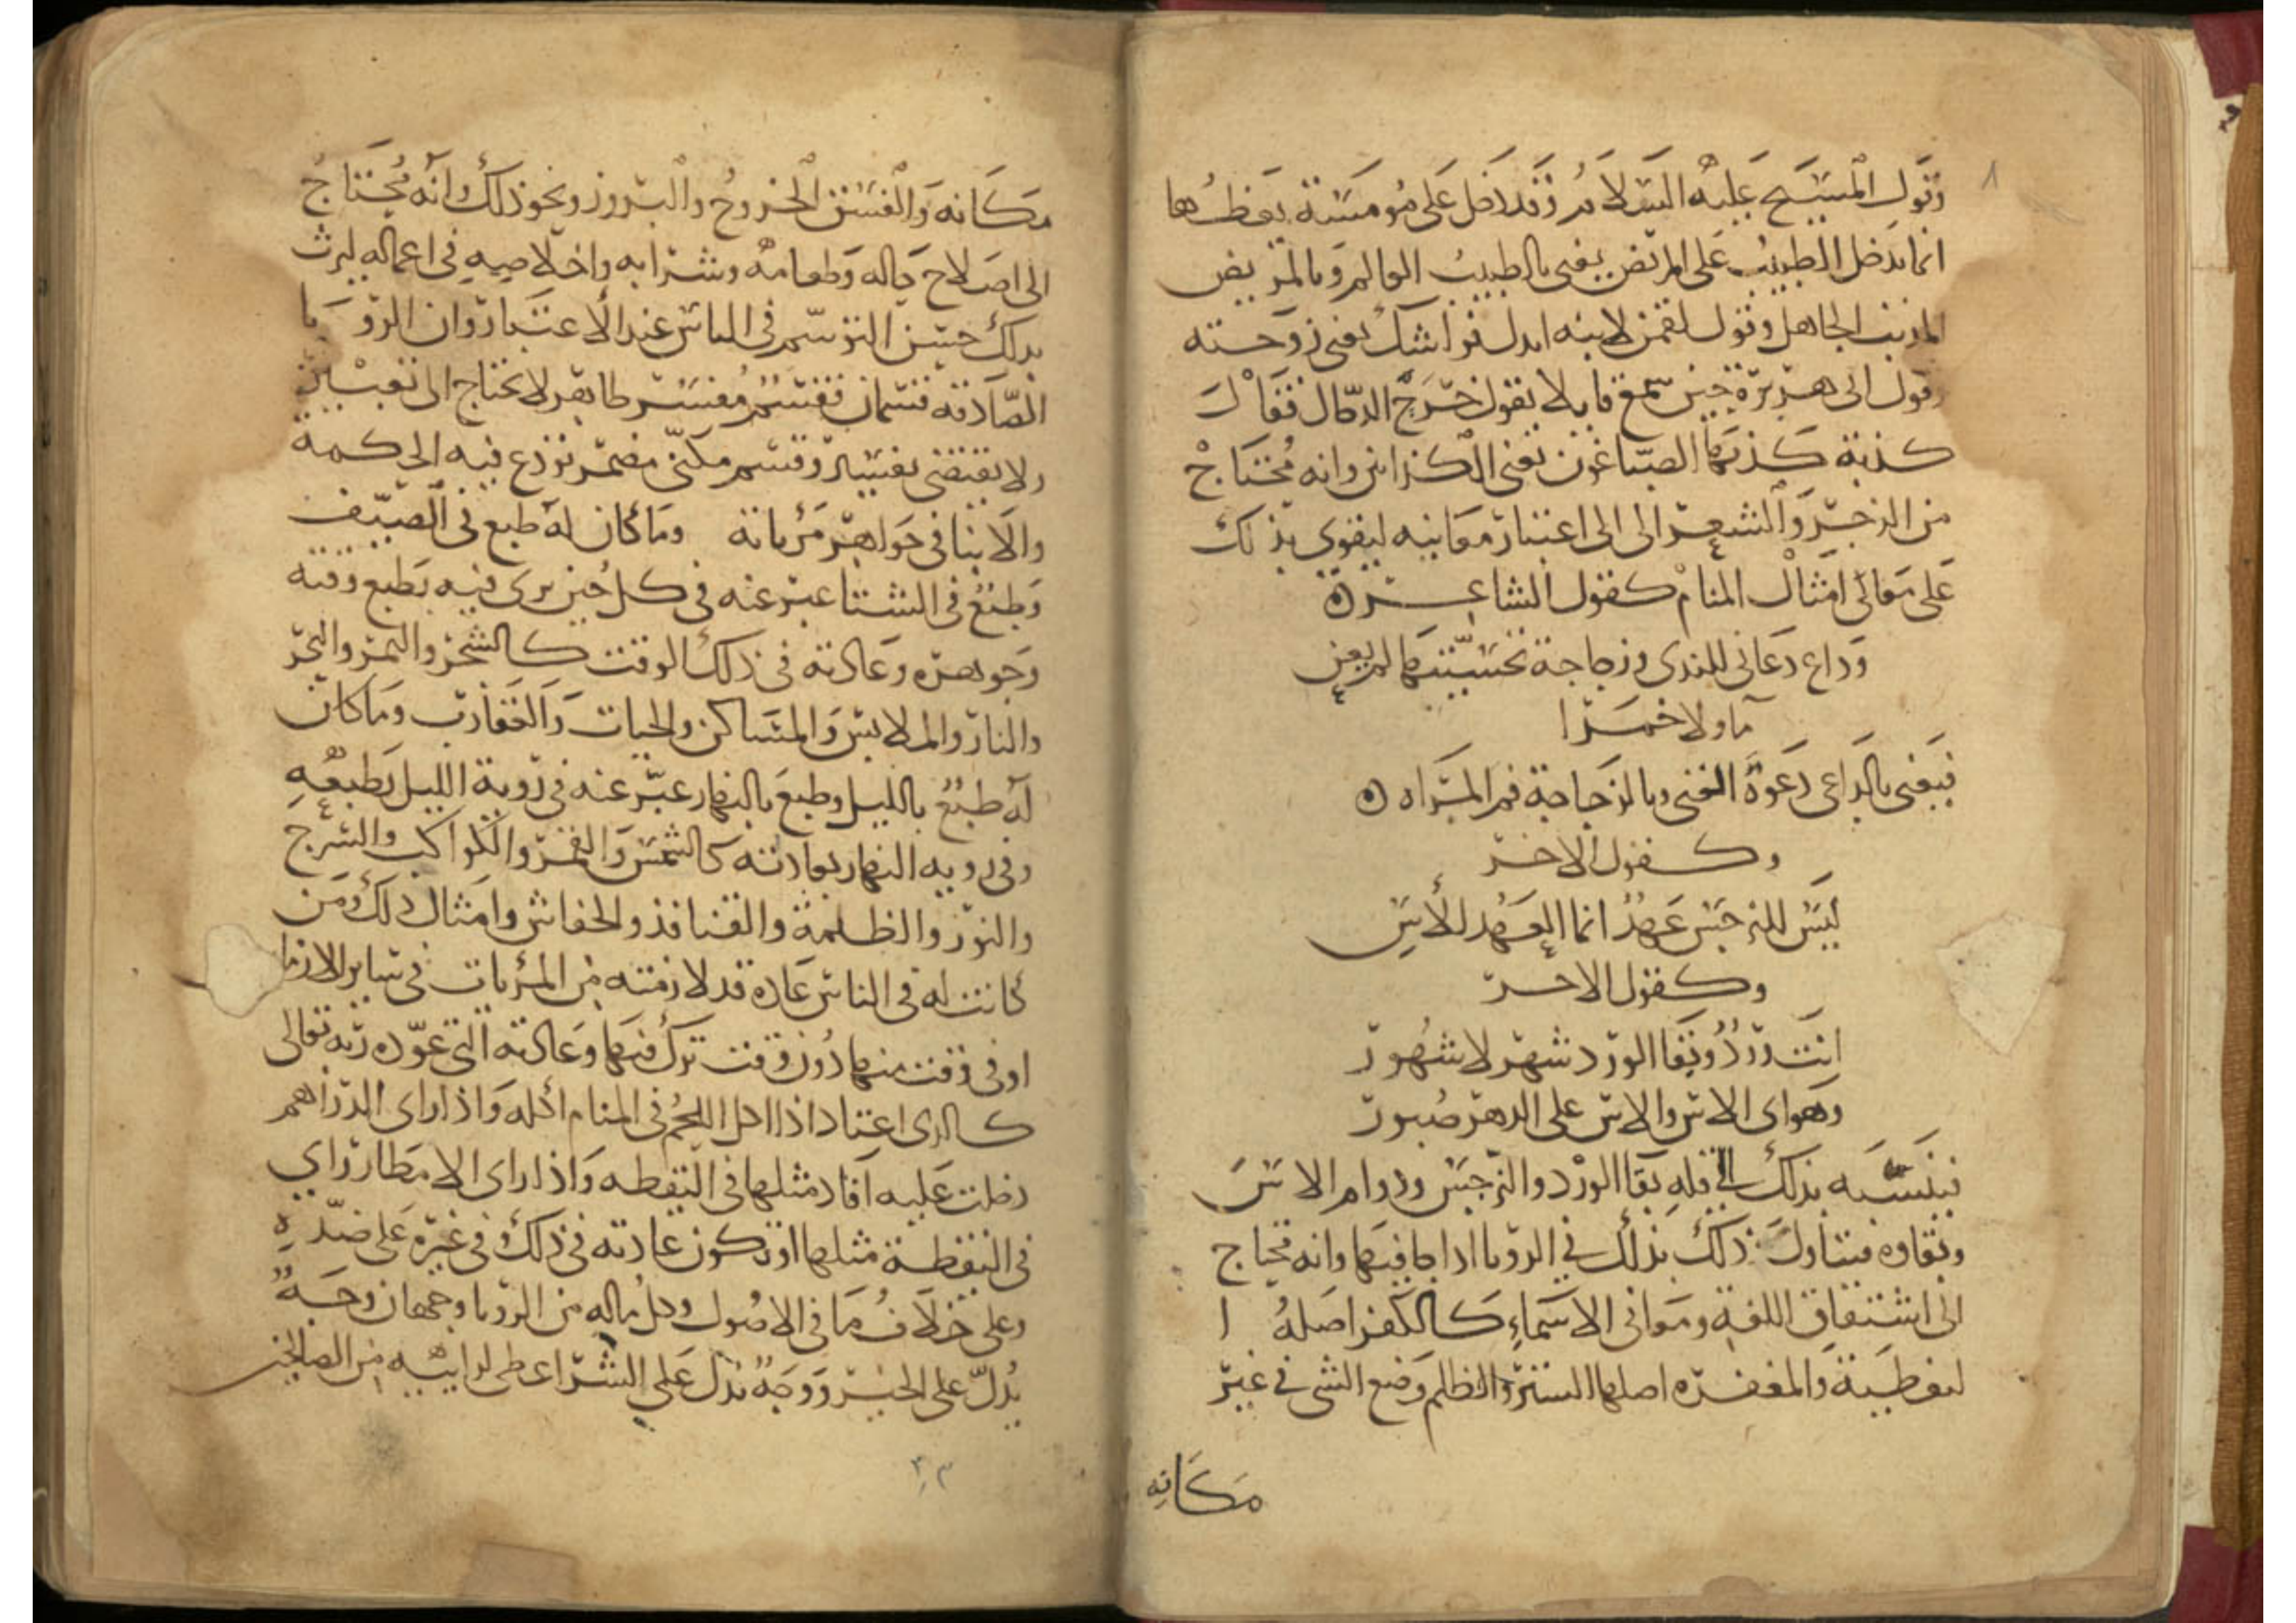 ٨
وقول المسيح عليه السلام وقد دخل على مومسة يعظها
انما يدخل الطبيب على المريض يعني بالطبيب العالم وبالمريض
المذنب الجاهل وقول لقمن لابنه ابدل فراشك يعني زوجته
وقول ابى هريرة حين سمع قايلا يقول خرج الدجال فقال
كذبة كذبها الصباغون يعني الكذابين وانه محتاج
من الزجر والشعر الى الى اعتبار معانيه ليقوي بذلك
على معاني امثال المنام كقول الشاعر ه
وداع دعاني للندى وزجاجة تحسيتها لم يعن
ماء ولا خمرا
فيعني بالداعي دعوة الغنى وبالزجاجة فم المراه ه
وكقول الاخر
ليس للنرجس عهد انما العهد للأس
وكقول الاخر
انت ورد وبقا الورد شهر لا شهور
وهواى الاس والاس على الدهر صبور
فينسبه بذلك الى قلة بقا الورد والنرجس ودوام الاس
وبقاوه فيتاول ذلك بذلك في الرويا اذا جا فيها وانه يحتاج
الى اشتقاق اللغة ومعاني الاسماء كالكفر اصله ا
لتغطية والمغفره اصلها الستر والظلم وضع الشي في غير
مكانه
مكانه والفسق الخروج والبروز ونحو ذلك وانه يحتاج
الى اصلاح حاله وطعامه وشرابه واخلاصه في اعماله ليرث
بذلك حسن التوسم في الناس عند الاعتبار وان الرويا
الصادقه قسمان فقسم مفسر ظاهر لا يحتاج الى تعبير
ولا يقتضي تفسير وقسم مكنى مضمر تودع فيه الحكمة
والانبا في جواهر مرياته وما كان له طبع في الصيف
وطبع في الشتا عبر عنه في كل حين يرى فيه بطبع وقته
وجوهره وعادته في ذلك الوقت كالشجر والثمر والبحر
والنار والملابس والمساكن والحيات والعقارب وما كان
له طبع بالليل وطبع بالنهار عبر عنه في روية الليل بطبعه
وفي رويه النهار بعادته كالشمس والقمر والكواكب والسرج
والنور والظلمة والقنافذ والخفاش وامثال ذلك ومن
كانت له في الناس عاده قد لازمته من المريات في ساير الازما
او في وقت منها دون وقت ترك فيها وعادته التي عوده ربه تعالى
كالذى اعتاد اذا اكل اللحم في المنام اكله واذا راى الدراهم
دخلت عليه افاد مثلها في اليقظه واذا راى الامطار راي
في اليقظة مثلها او تكون عادته في ذلك في غيره على ضده
وعلى خلاف ما في الاصول وكل ماله من الرويا وجهان وجه
يدل على الخير ووجه يدل على الشر اعطى لرايه من الصالحين